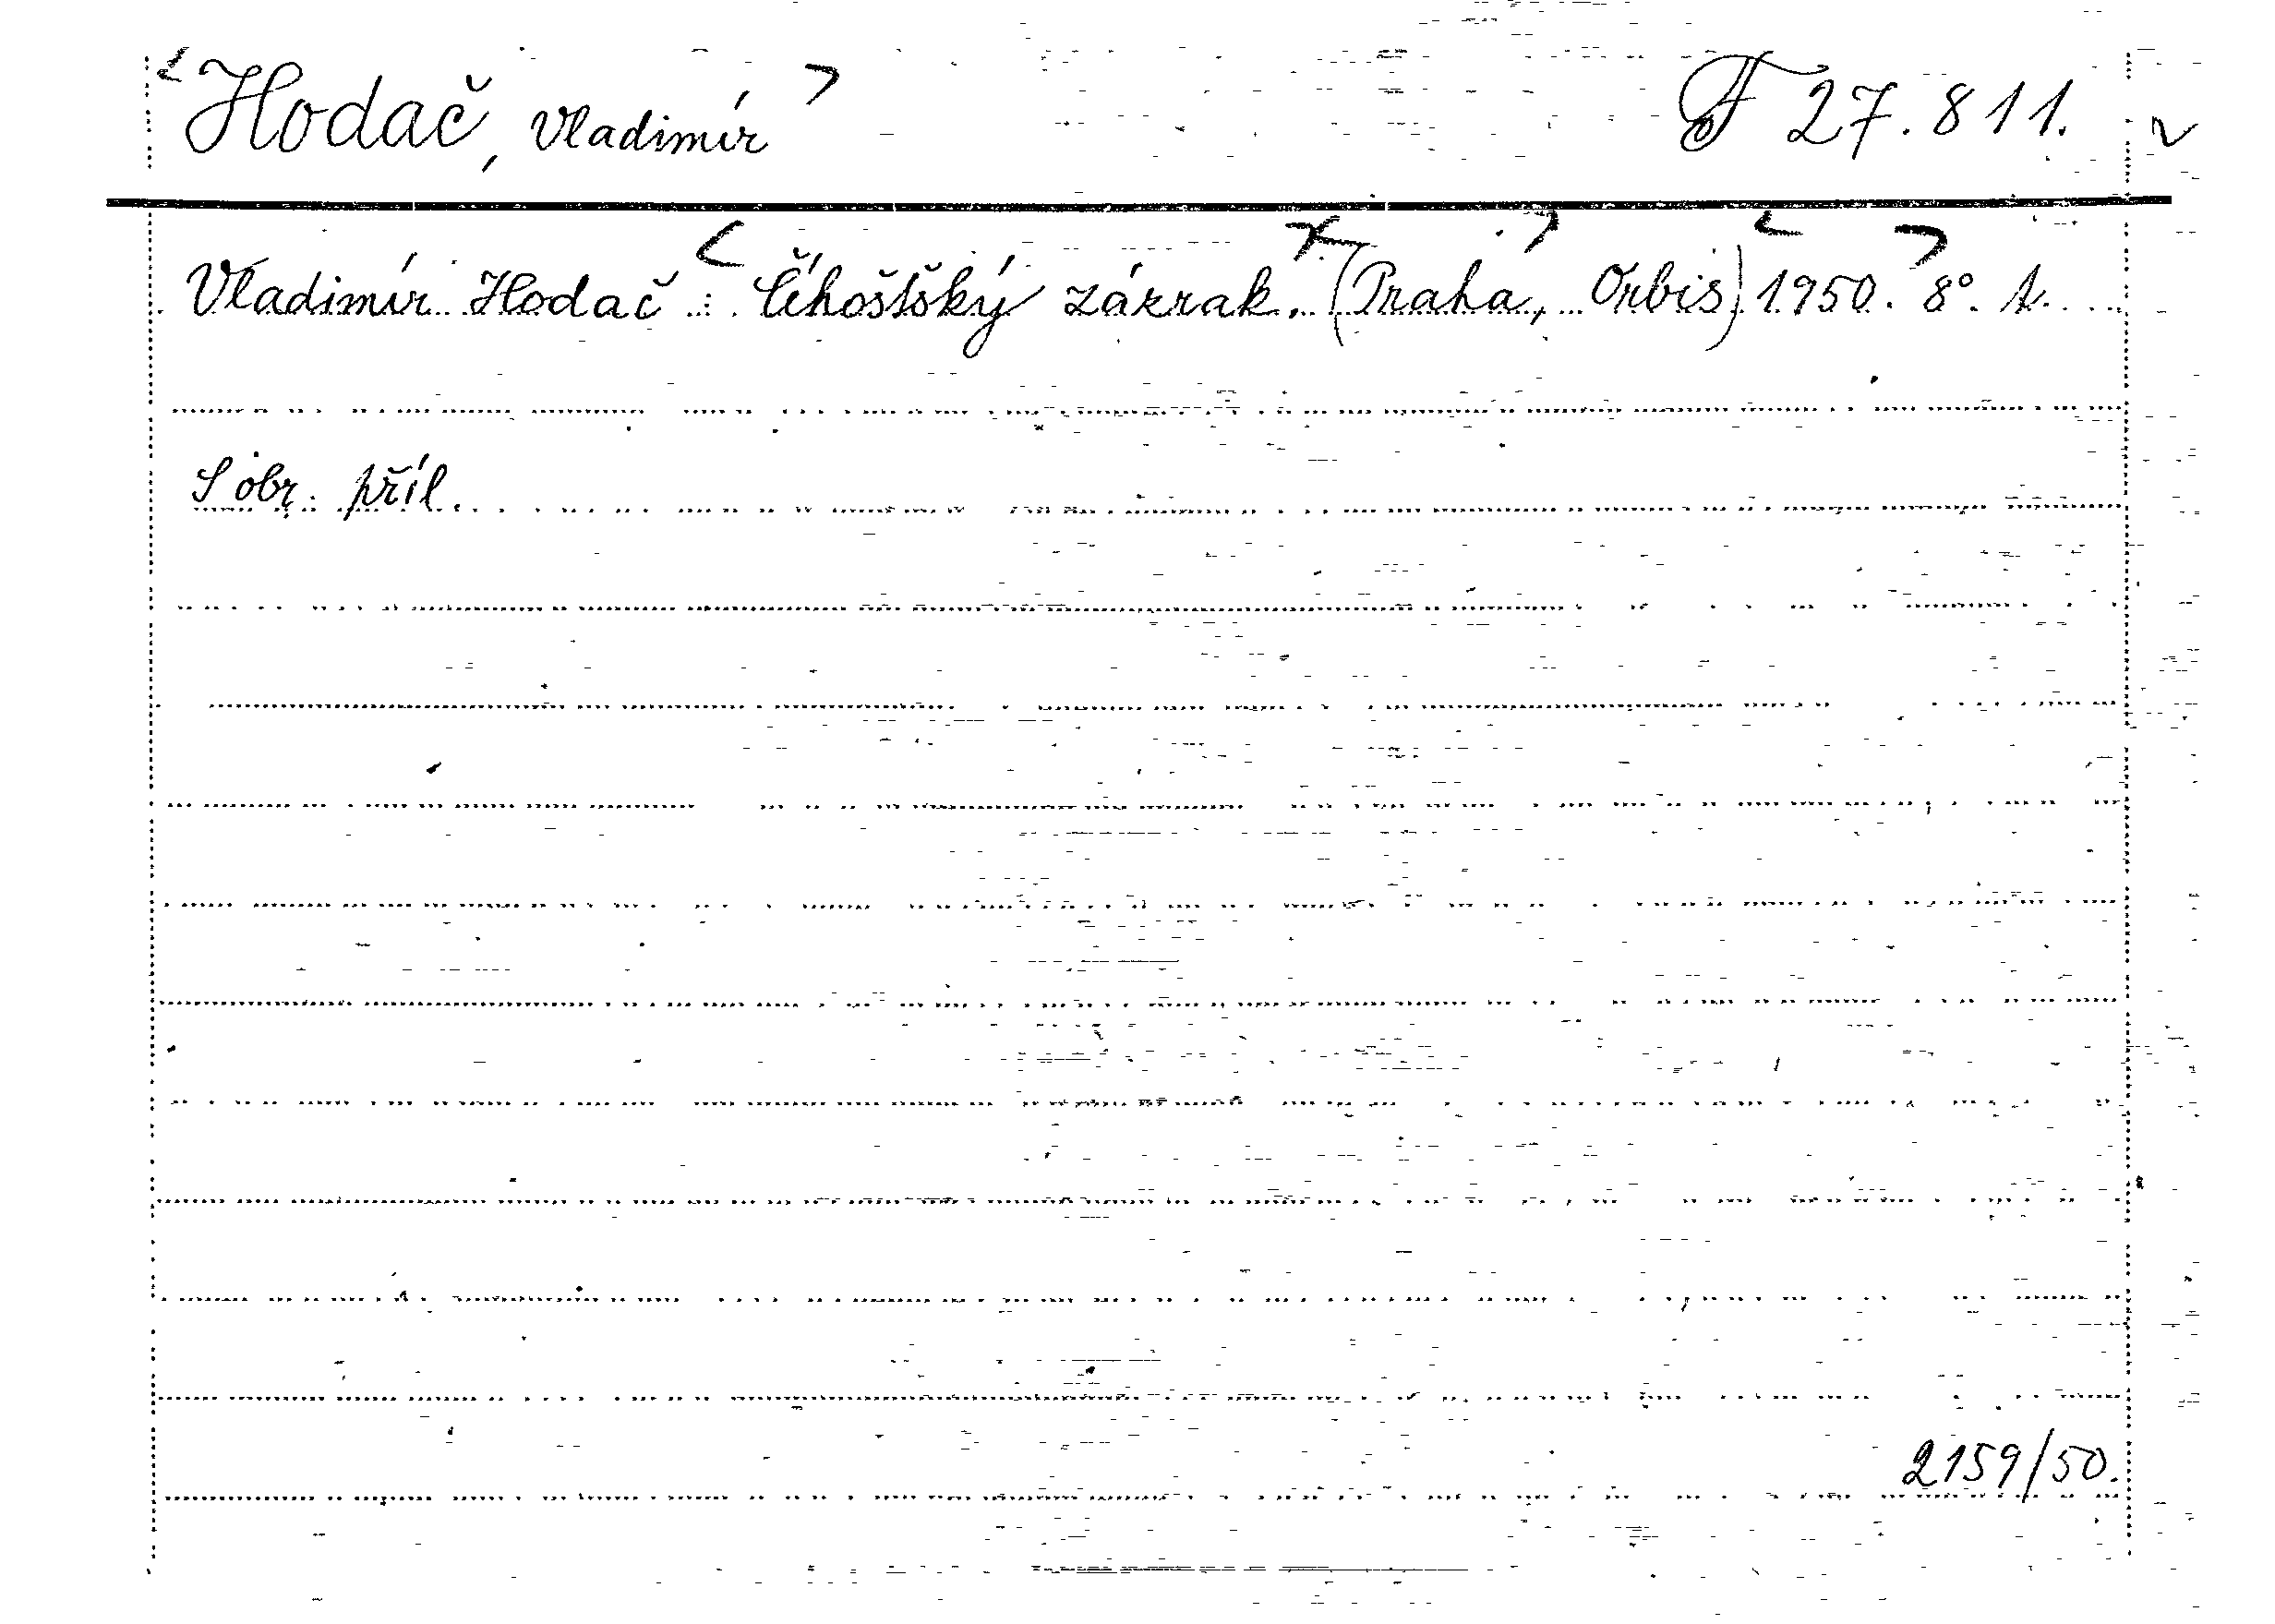 Hodač, Vladimír F 27.811.
Vladimír Hodač: Číhošťský zázrak. (Praha, Orbis) 1950. 8°. 1.
S obr. příl.
2159/50.